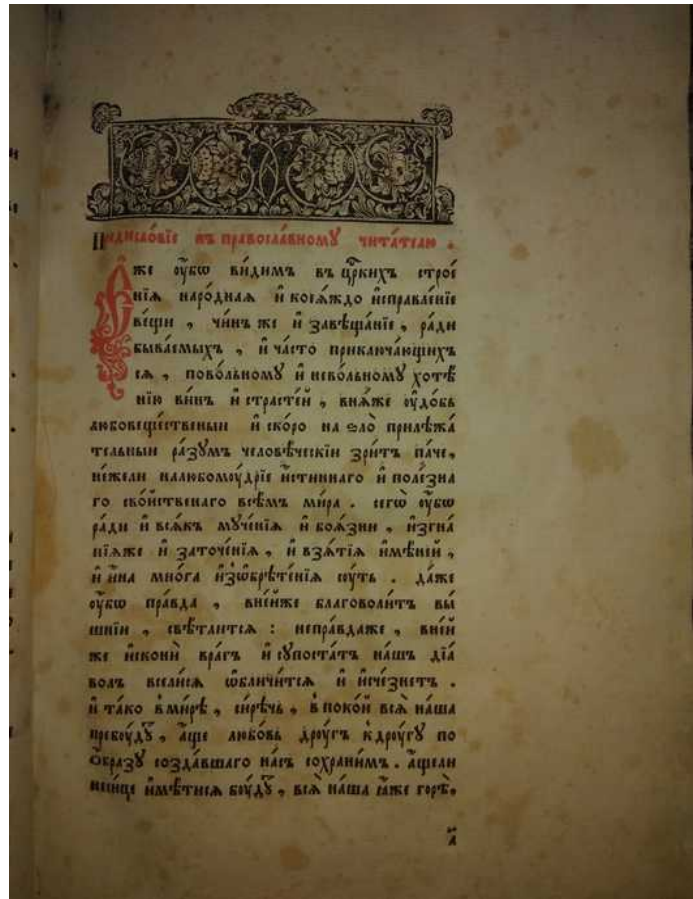 Предисло́вїе къ правосла́вному чита́телю .
Е҆́же ᲂу҆́бѡ ви́димъ въ цр҃кихъ строе́
нїѧ наро́днаѧ и҆ коеѧ́ждо и҆справле́нїе
ве́щи , чи́нъ же и҆ завѣща́нїе , ра́ди
быва́емыхъ , и҆ ча́сто приключа́ющих
сѧ , пово́льному и҆ нево́льному хотѣ́
нїю ви́нъ и҆ страсте́й , внѧ́же ᲂу҆до́бь
любовеще́ственыи и҆ ско́ро на ѕло̀ прилѣжа́
тельныи ра́зумъ человѣ́ческїи зри́тъ па́че ,
не́жели налюбомꙋ́дрїе и҆́стиннаго и҆ поле́зна
го сво́йственаго всѣ́мъ ми́ра . сегѡ̀ ᲂу҆́бѡ
ра́ди и҆ всѧ́къ мꙋче́нїѧ и҆ боѧ́зни , и҆згна́
нїѧже и҆ заточе́нїѧ , и҆ взѧ́тїѧ и҆мѣ́ней ,
и҆ и҆́на мно́га и҆з̾ѡбрѣте́нїѧ сꙋ́ть . да́же
ᲂу҆́бѡ пра́вда , вне́йже благоволи́тъ вы́
шнїи , свѣ́тлитсѧ : непра́вдаже , вне́й
же и҆сконѝ вра́гъ и҆ сꙋпоста́тъ на́шъ дїа́
волъ всели́сѧ ѡ҆бличи́тсѧ и҆ и҆сче́знетъ .
и҆ та́ко в̾ми́рѣ , си́рѣчь , в̾поко́й всѧ̀ на́ша
пребꙋ́дꙋтъ , а҆́ще любо́вь дрꙋ́гъ к̾дрꙋ́гꙋ по
ѻ҆́бразꙋ созда́вшаго на́съ сохрани́мъ . а҆́щели
неси́це и҆мѣ́тисѧ бꙋ́дꙋтъ , всѧ̀ на́ша ꙗ҆́же горѣ̀ ,